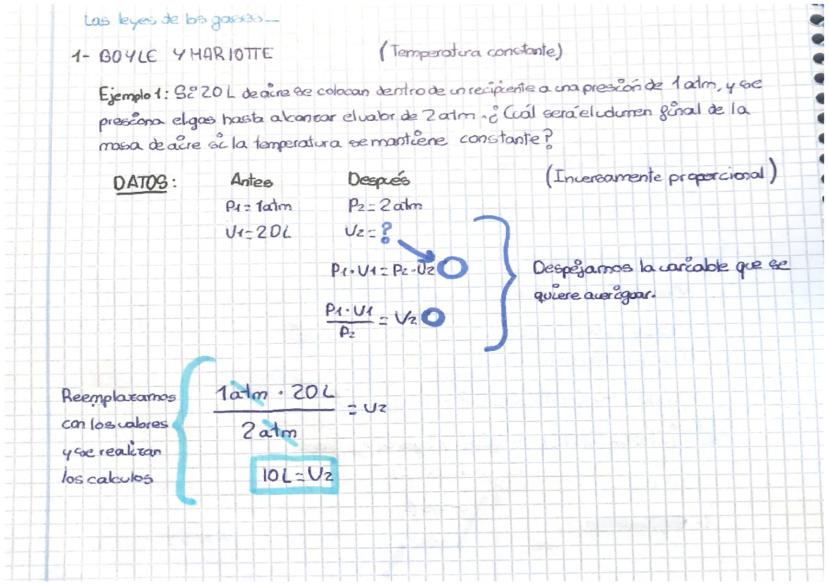 Las leyes de los gases...
1- BOYLE Y MARIOTTE (Temperatura constante)
Ejemplo 1: Si 20 L de aire se colocan dentro de un recipiente a una presión de 1 atm, y se
presiona el gas hasta alcanzar el valor de 2 atm. ¿Cuál será el volumen final de la
masa de aire si la temperatura se mantiene constante?
DATOS: Antes Después (Inversamente proporcional)
P1 = 1atm P2 = 2 atm
V1 = 20L V2 = ?
P1 · V1 = P2 · V2
P1 · V1 / P2 = V2
Despejamos la variable que se
quiere averiguar.
Reemplazamos
con los valores
y se realizan
los calculos
1 atm · 20 L / 2 atm = V2
10 L = V2